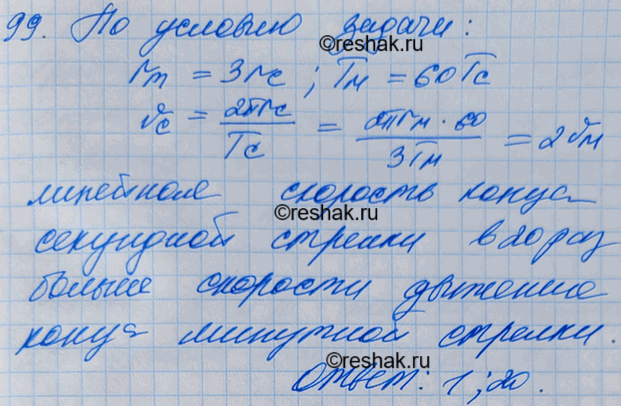 99. По условию задачи:
©reshak.ru
rm = 3rc ; Tм = 60Tc
vc = 2πrc / Tc = 2πrм · 60 / 3Tм = 2vм
линейная скорость конца
©reshak.ru
секундной стрелки в 20 раз
больше скорости движение
конца минутной стрелки.
©reshak.ru
Ответ: 1 ; 20.